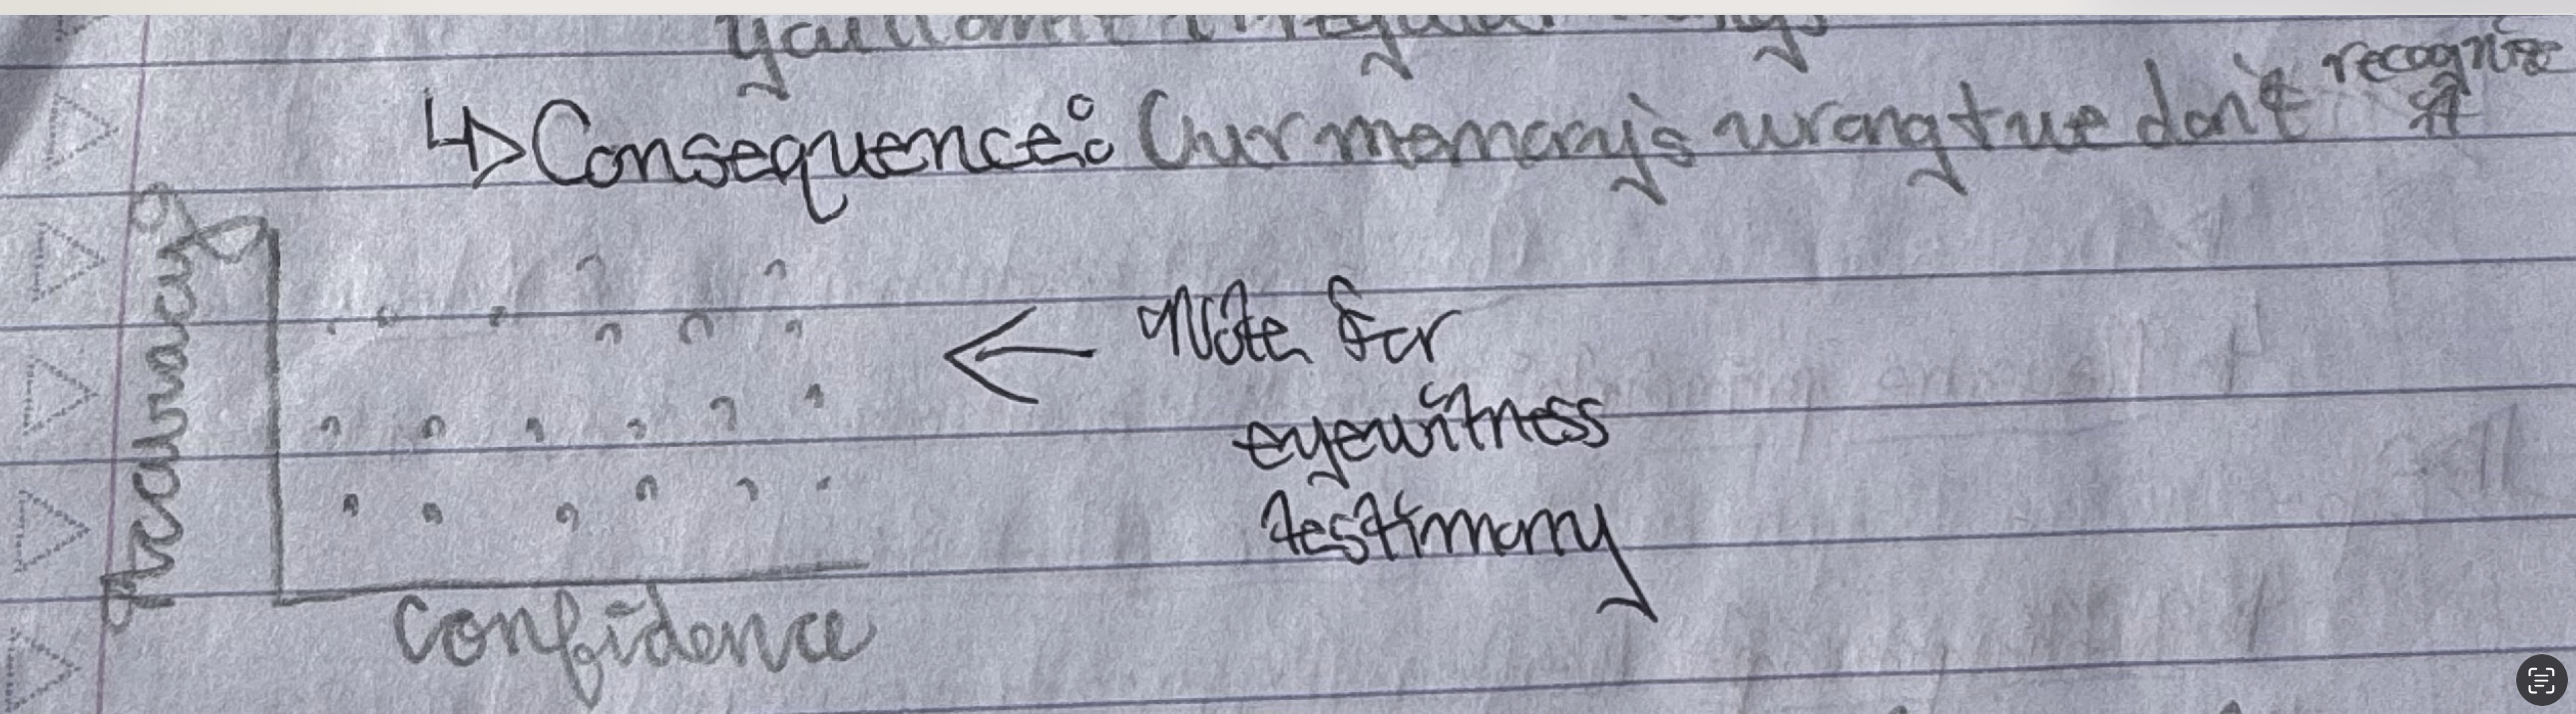 recognize
↳ Consequence: Our memory's wrong + we don't it
Accuracy
← Note for
eyewitness
testimony
Confidence